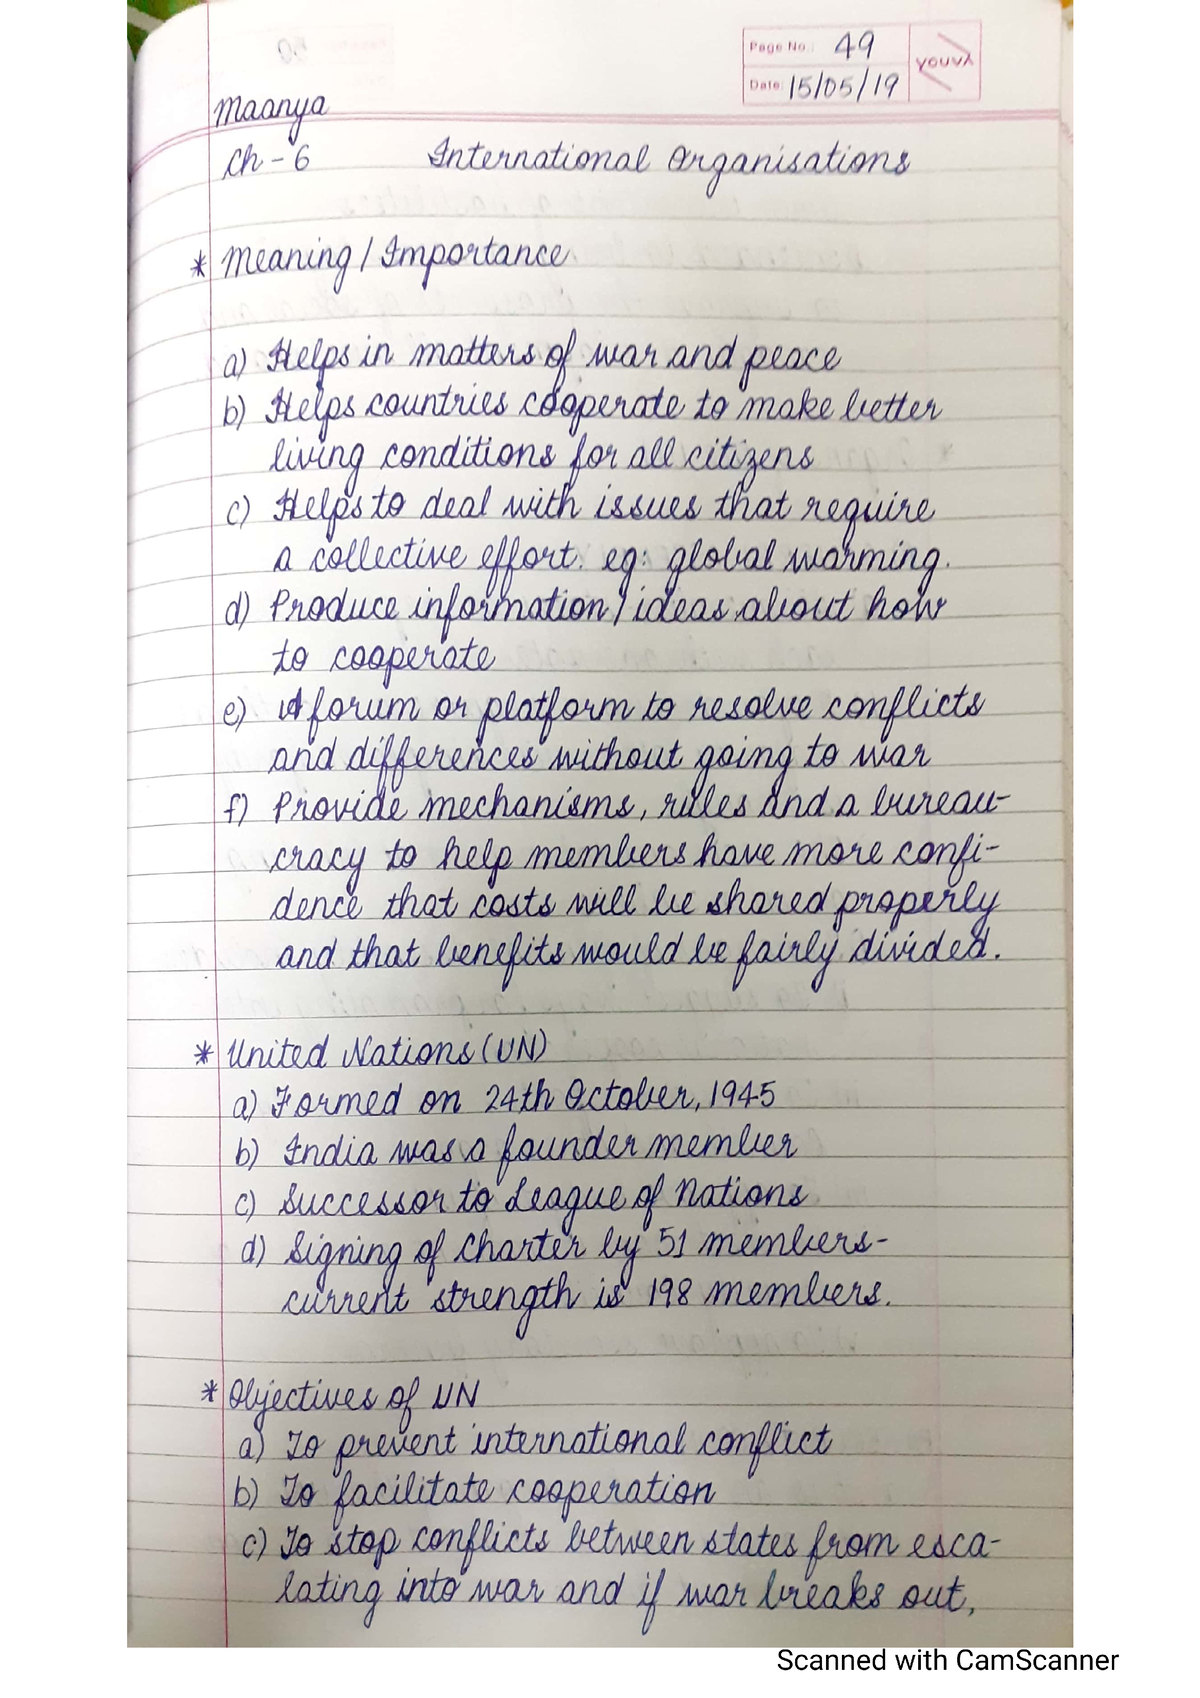 Page No.: 49
Date: 15/05/19
YOUVA
Maanya
Ch - 6 International Organisations
* Meaning / Importance
a) Helps in matters of war and peace
b) Helps countries cooperate to make better
living conditions for all citizens
c) Helps to deal with issues that require
a collective effort. eg: global warming.
d) Produce information / ideas about how
to cooperate
e) A forum or platform to resolve conflicts
and differences without going to war
f) Provide mechanisms, rules and a bureau-
cracy to help members have more confi-
dence that costs will be shared properly
and that benefits would be fairly divided.
* United Nations (UN)
a) Formed on 24th October, 1945
b) India was a founder member
c) Successor to League of Nations
d) Signing of Charter by 51 members-
current strength is 198 members.
* Objectives of UN
a) To prevent international conflict
b) To facilitate cooperation
c) To stop conflicts between states from esca-
lating into war and if war breaks out,
Scanned with CamScanner